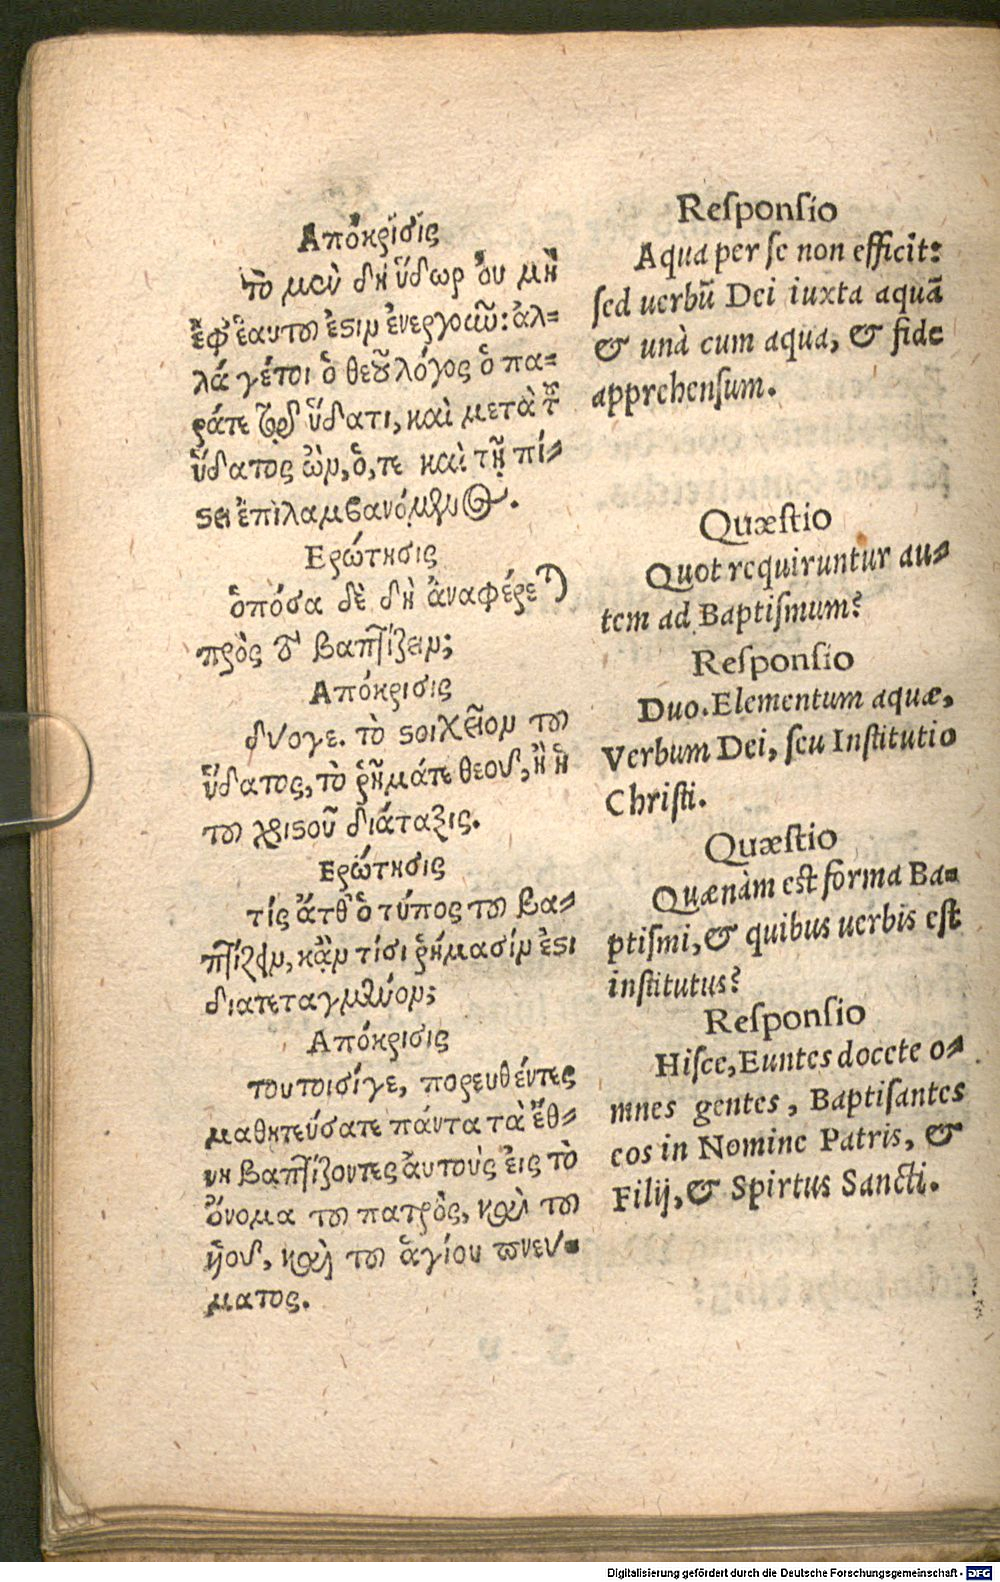 Ἀπόκρισίς
τὸ μὲν δὴ ὕδωρ ὀυ μὴ
ἐφ̓ ἑαυτοῦ ἐστιν ἐνεργοιῶν: ἀλ=
λά γέτοι ὁ θεοῦ λόγος ὁ πα=
ράτε ὕδατι, καὶ μετὰ τοῦ
ὕδατος ὢν, ὅ, τε καὶ τῇ πί=
στει ἐπιλαμβανόμενος.
Ερώτησις
ὁπόσα δὲ δὴ ἀναφέρεται
πρὸς τὸ βαπτίζειν;
Απόκρισις
δύογε. τὸ στοιχεῖον τοῦ
ὕδατος, τὸ ῥῆμάτε θεοῦ, ἢ ἡ
τοῦ χριστοῦ διάταξις.
Ερώτησις
τίς ἄτθ' ὁ τύπος τοῦ βα=
πτίζειν, κᾂν τίσι ῥήμασίν ἐστι
διατεταγμένον;
Απόκρισις
τουτοισίγε, πορευθέντες
μαθητεύσατε πάντα τὰ ἔθ=
νη βαπτίζοντες ἀυτοὺς ἐις τὸ
ὄνομα τοῦ πατρὸς, καὶ τοῦ
ἡοῦ, καὶ τοῦ ἁγίου πνευ=
ματος.
Reſponſio
Aqua per ſe non efficit:
ſed uerbū Dei iuxta aquā
& unà cum aqua, & fide
apprehenſum.
Quæſtio
Quot requiruntur au=
tem ad Baptiſmum?
Reſponſio
Duo. Elementum aquæ,
Verbum Dei, ſeu Inſtitutio
Chriſti.
Quæſtio
Quænàm eſt forma Ba=
ptiſmi, & quibus uerbis eſt
inſtitutus?
Reſponſio
Hiſce, Euntes docete o=
mnes gentes, Baptiſantes
eos in Nomine Patris, &
Filij, & Spirtus Sancti.
Digitalisierung gefördert durch die Deutsche Forschungsgemeinschaft - DFG